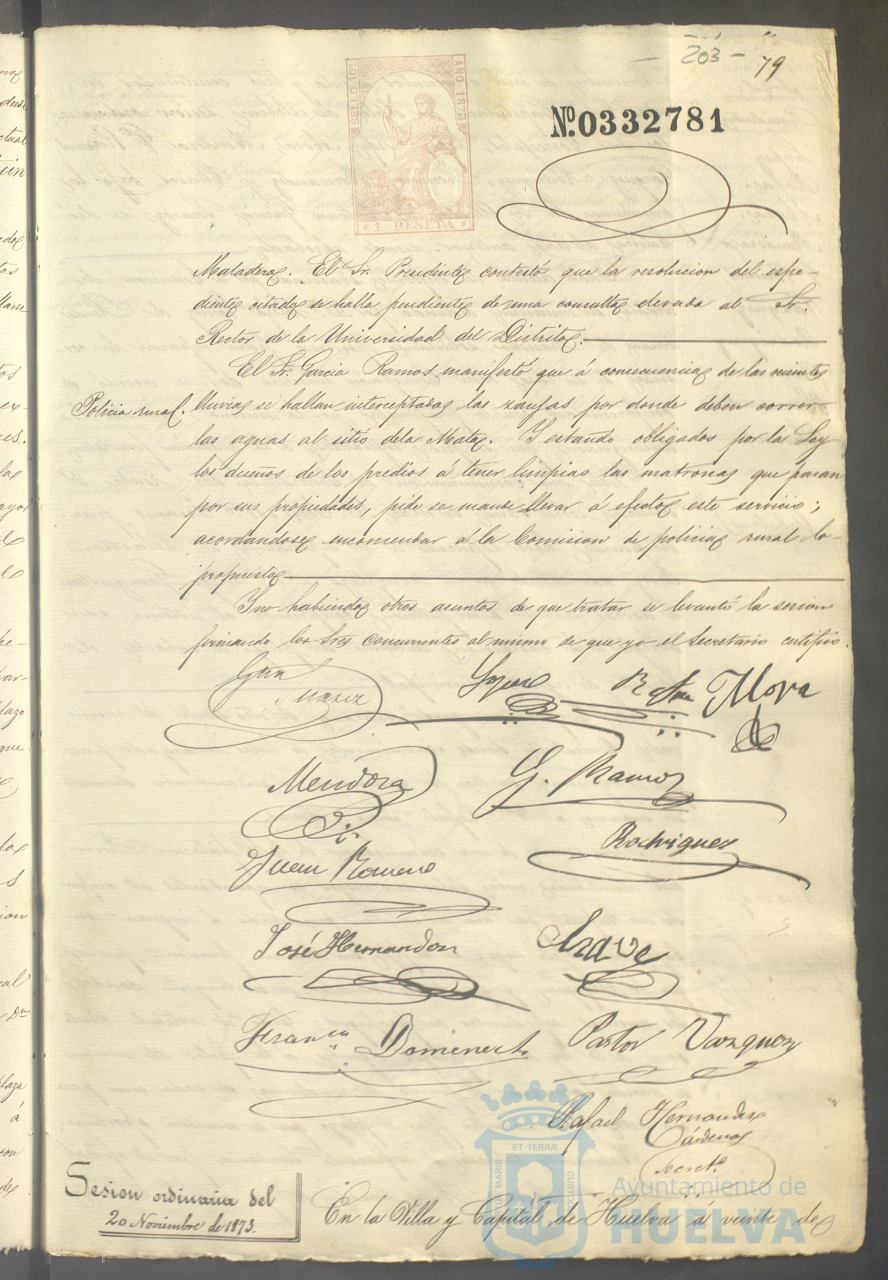 - 203 -
79
SELLO 10º
AÑO 1873
1 PESETA
Nº 0332781
Matadero. El Sr. Presidente contestó que la resolucion del espe-
diente citado se halla pendiente de una consulta elevada al Sr.
Rector de la Universidad del Distrito.
El Sr. Garcia Ramos manifestó que á consecuencia de las recientes
Policia rural.
lluvias se hallan interceptadas las zanjas por donde deben correr
las aguas al sitio dela Mata. Y estando obligados por la Ley
los dueños de los predios á tener limpias las matronas que pasan
por sus propiedades, pide se mande llevar á efecto este servicio;
acordandose encomendar á la Comision de policia rural lo
propuesto
Y no habiendo otros asuntos de que tratar se levantó la sesion
firmando los Sres concurrentes al mismo de que yo el Secretario certifico.
Lopez
Mora
Mendoza
G. Ramos
Rodriguez
Juan Romero
José Hernandez
Franco Domenech
Pastor Vazquez
Rafael Hernandez
Cárdenas
Secreto
Sesion ordinaria del
20 Noviembre de 1873.
En la Villa y Capital de Huelva á veinte de
ET TERRÆ
MARIS
CUSTODIA
Ayuntamiento de
HUELVA